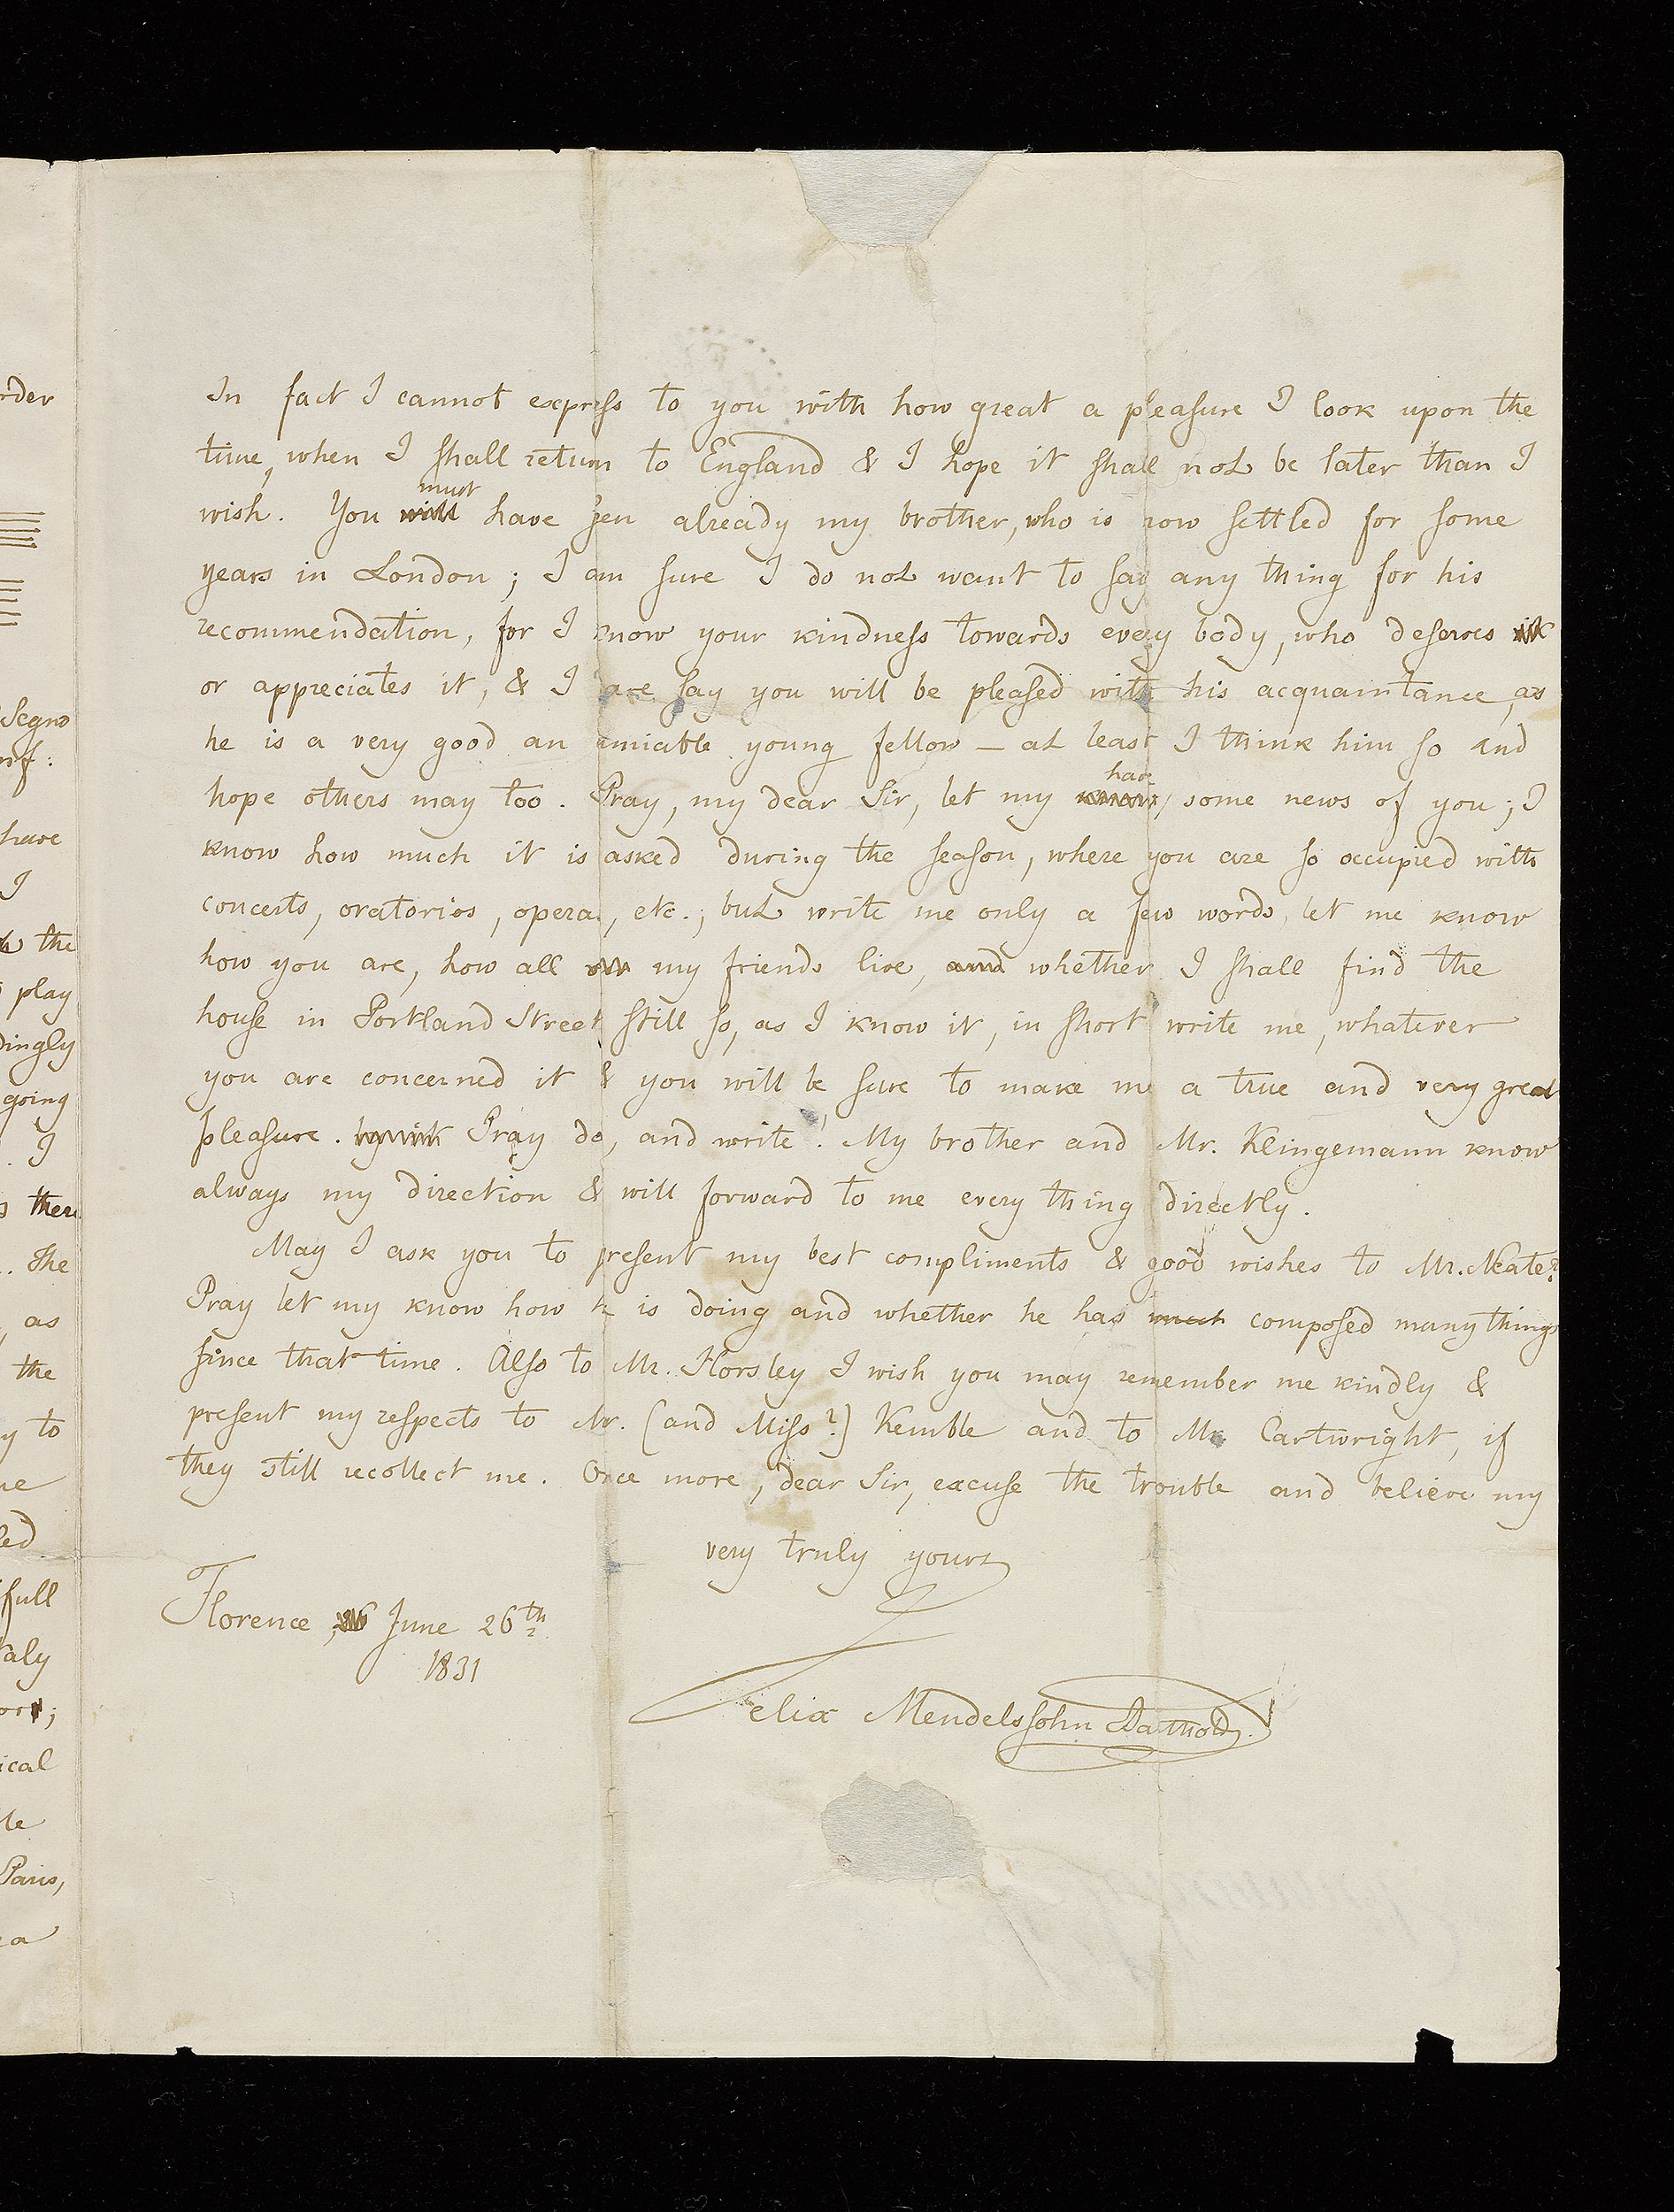 rder
Segno
nf:
have
I
the
play
dingly
going
. I
s there
. The
, as
the
y to
ne
led
full
taly
ical
le
Paris,
ea
In fact I cannot express to you with how great a pleasure I look upon the
time, when I shall return to England & I hope it shall not be later than I
must
wish. You will have seen already my brother, who is now settled for some
years in London; I am sure I do not want to say any thing for his
recommendation, for I know your kindness towards every body, who deserves it
or appreciates it, & I dare say you will be pleased with his acquaintance, as
he is a very good an amiable young fellow – at least I think him so and
have
hope others may too. Pray, my dear Sir, let my know some news of you; I
know how much it is asked during the season, where you are so occupied with
concerts, oratorios, operas, etc.; but write me only a few words, let me know
how you are, how all my friends live, and whether I shall find the
house in Portland Street still so, as I know it, in short write me, whatever
you are concerned it & you will be sure to make me a true and very great
pleasure. Pray do, and write! My brother and Mr. Klingemann know
always my direction & will forward to me every thing directly.
May I ask you to present my best compliments & good wishes to Mr. Neate?
Pray let my know how he is doing and whether he has much composed many things
since that time. Also to Mr. Horsley I wish you may remember me kindly &
present my respects to Mr. (and Miss?) Kemble and to Mr. Cartwright, if
they still recollect me. Once more, dear Sir, excuse the trouble and believe my
very truly yours
Florence, June 26th
1831
Felix Mendelssohn Bartholdy.